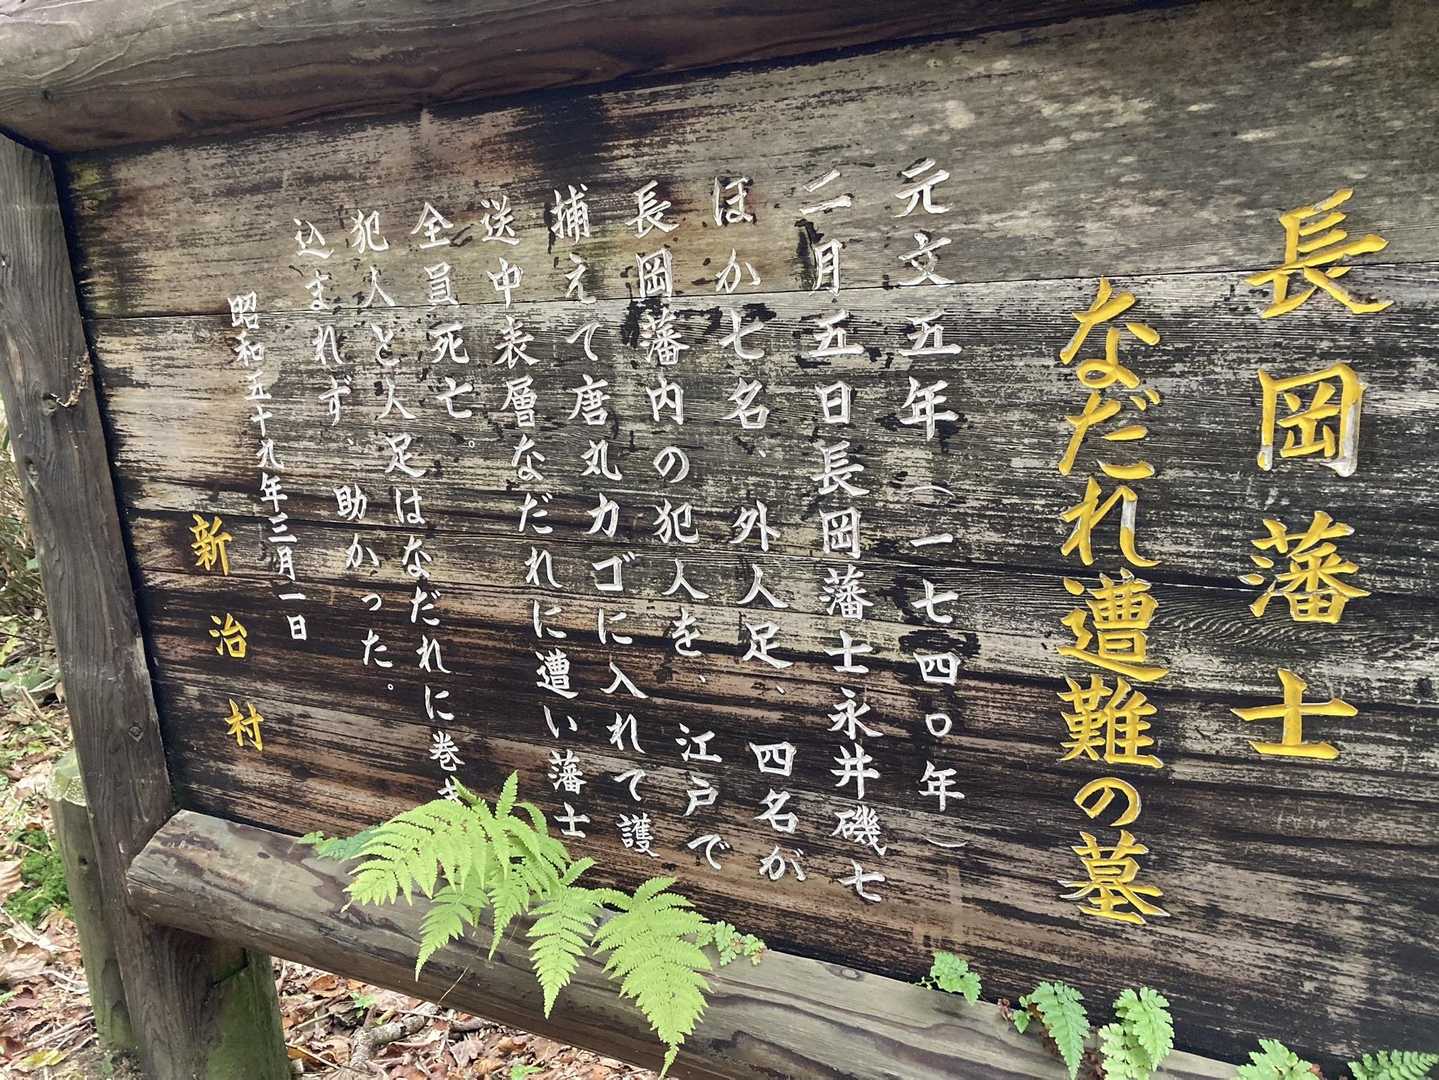 長岡藩士
なだれ遭難の墓
元文五年(一七四〇年)
二月五日長岡藩士永井磯七
ほか七名、外人足、四名が
長岡藩内の犯人を、江戸で
捕えて唐丸カゴに入れて護
送中表層なだれに遭い藩士
全員死亡。
犯人と人足はなだれに巻き
込まれず、助かった。
昭和五十九年三月一日
新治村